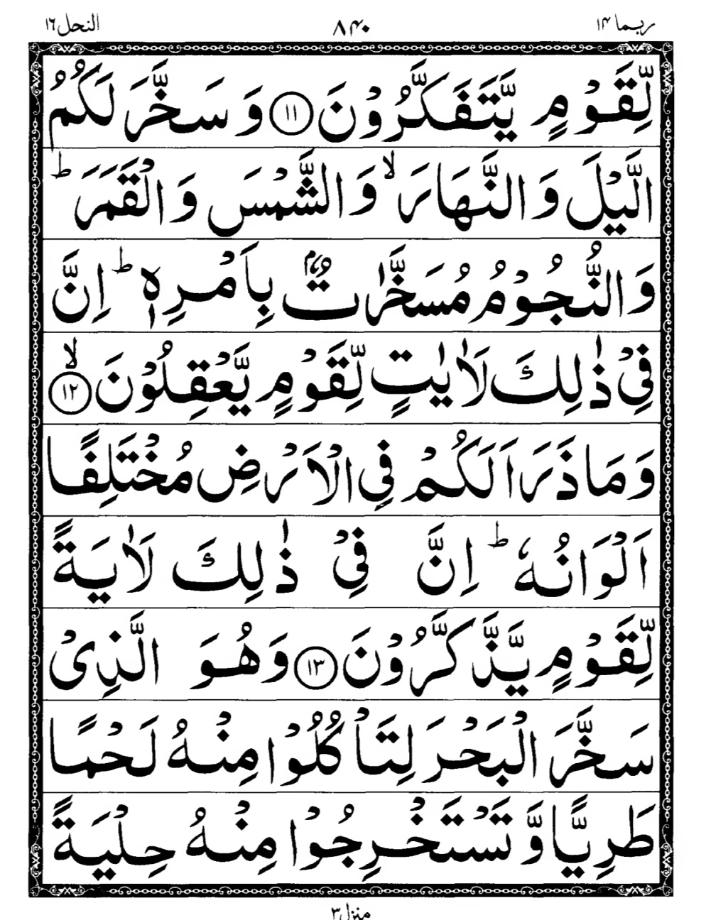 ربما ١٤ ٨٤٠ النحل ١٦
لِّقَوْمٍ يَّتَفَكَّرُوْنَ ﴿١١﴾ وَ سَخَّرَ لَكُمُ
الَّيْلَ وَ النَّهَارَ ۙ وَ الشَّمْسَ وَ الْقَمَرَ ؕ
وَ النُّجُوْمُ مُسَخَّرٰتٌۢ بِاَمْرِهٖ ؕ اِنَّ
فِيْ ذٰلِكَ لَاٰيٰتٍ لِّقَوْمٍ يَّعْقِلُوْنَ ۙ﴿١٢﴾
وَ مَا ذَرَاَ لَكُمْ فِي الْاَرْضِ مُخْتَلِفًا
اَلْوَانُهٗ ؕ اِنَّ فِيْ ذٰلِكَ لَاٰيَةً
لِّقَوْمٍ يَّذَّكَّرُوْنَ ﴿١٣﴾ وَ هُوَ الَّذِيْ
سَخَّرَ الْبَحْرَ لِتَاْكُلُوْا مِنْهُ لَحْمًا
طَرِيًّا وَّ تَسْتَخْرِجُوْا مِنْهُ حِلْيَةً
منزل ٣